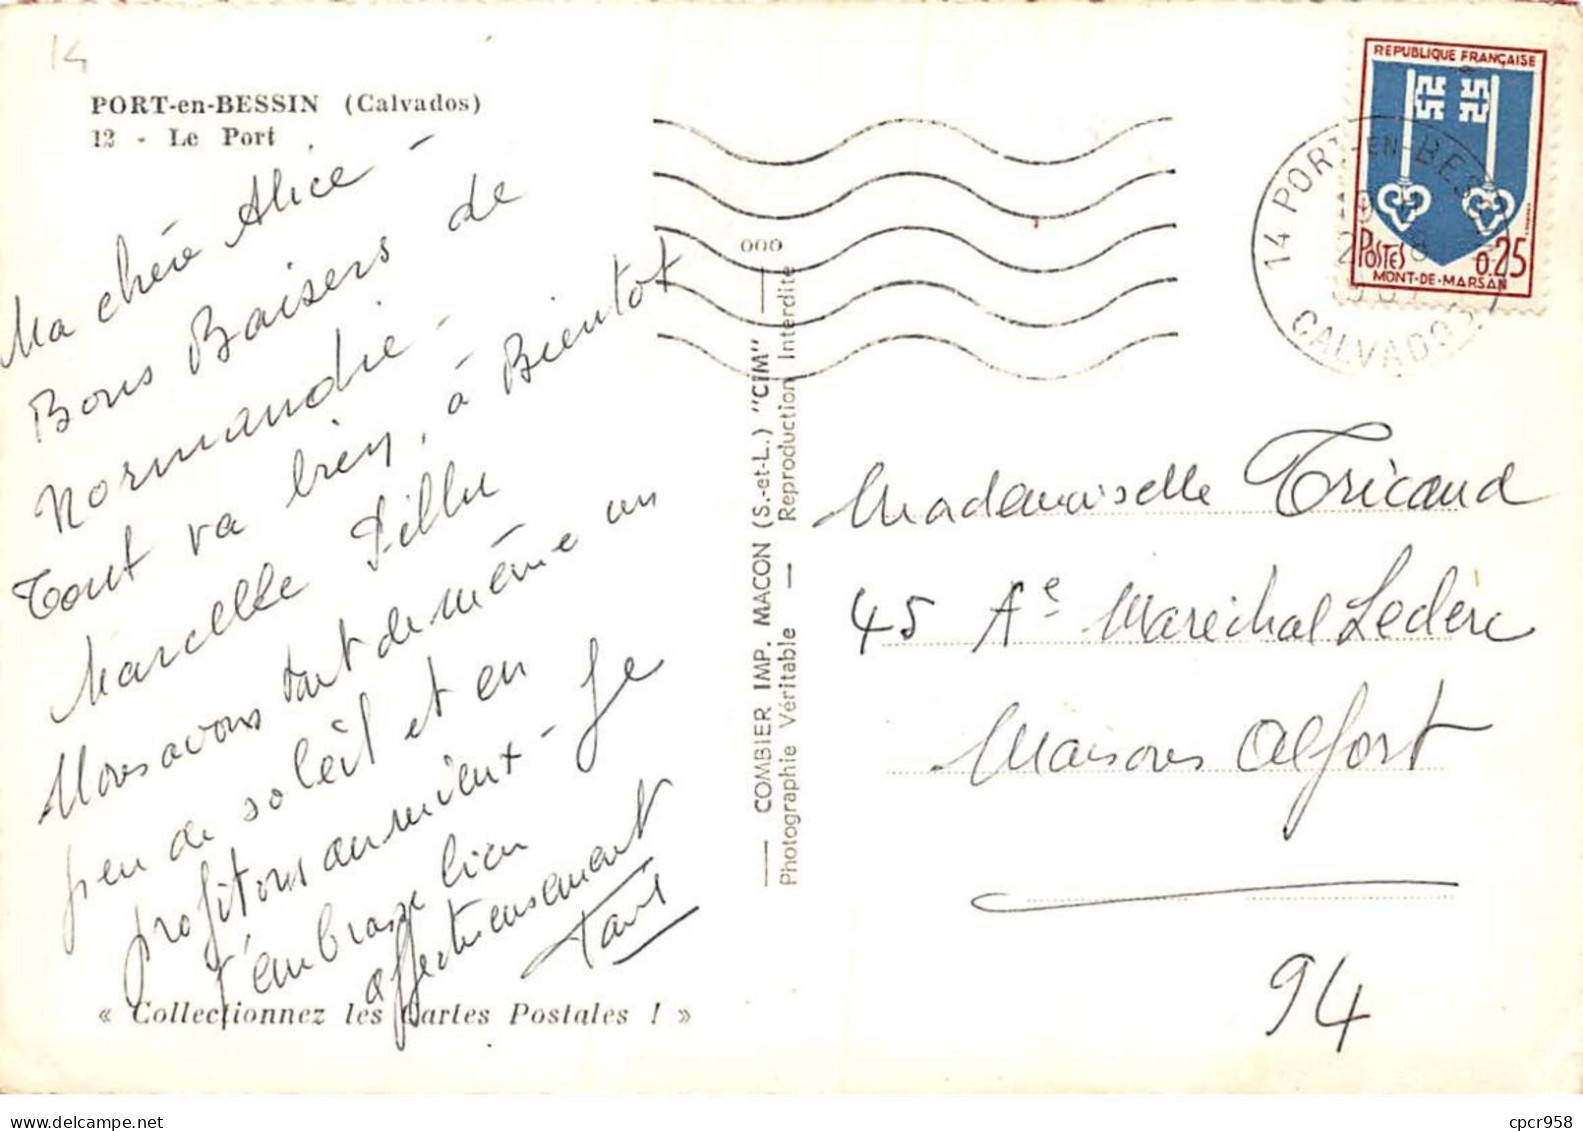 14
PORT-en-BESSIN (Calvados)
12 - Le Port
Ma chère Alice -
Bons Baisers de
Normandie -
Tout va bien, à Bientot
Marcelle
Nous avons tout de même un
peu de soleil et en
profitons au mieux - Je
t'embrasse bien
affectueusement
« Collectionnez les Cartes Postales ! »
000
COMBIER IMP. MACON (S.-et-L.) "CIM"
Photographie Véritable — Reproduction Interdite
REPUBLIQUE FRANÇAISE
POSTES 0.25
MONT-DE-MARSAN
14 PORT-EN-BESSIN
CALVADOS
Mademoiselle Tricaud
45 Ae Maréchal Leclerc
Maisons Alfort
94
cpcr958